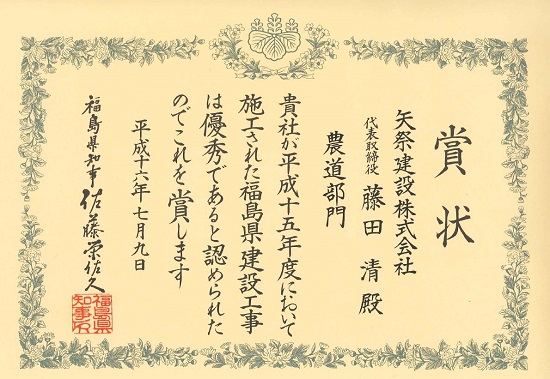 賞状
矢祭建設株式会社
代表取締役 藤田 清 殿
農道部門
貴社が平成十五年度において
施工された福島県建設工事
は優秀であると認められた
のでこれを賞します
平成十六年七月九日
福島県知事 佐藤栄佐久
福島県
知事印